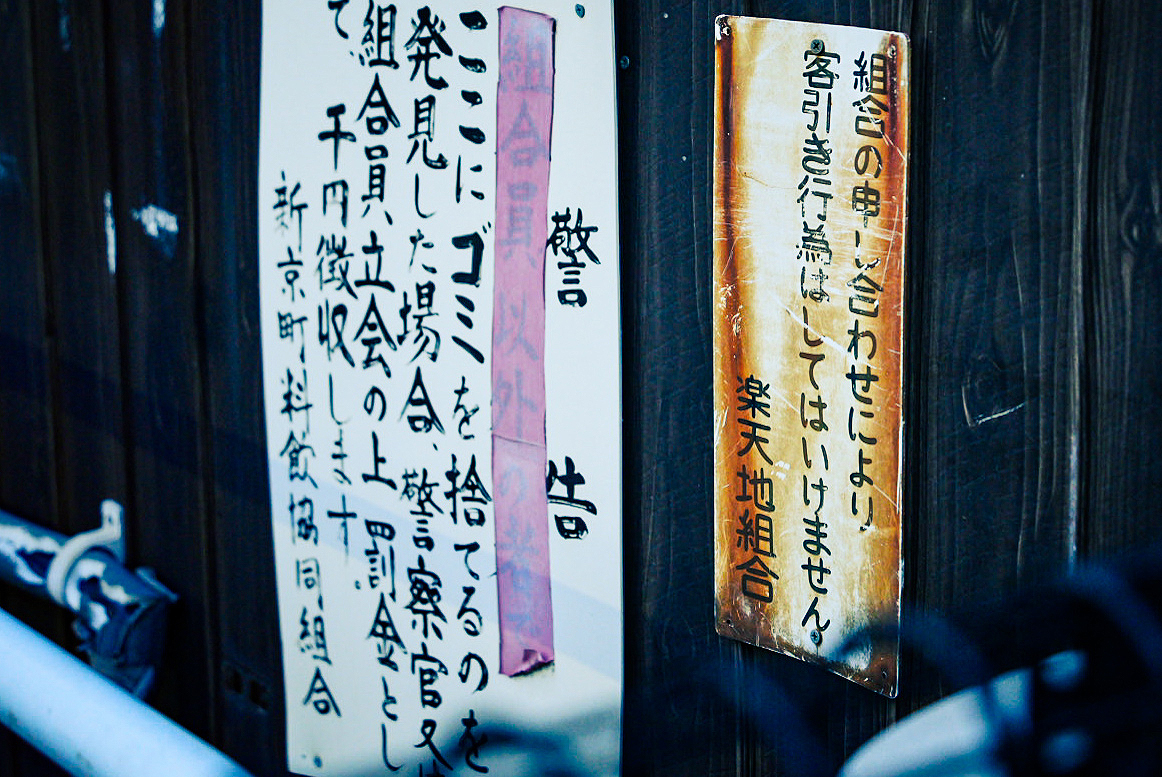 組合の申し合わせにより
客引き行為はしてはいけません
楽天地組合
警告
組合員以外の者
ここにゴミを捨てるのを
発見した場合、警察官又
組合員、立会の上罰金とし
て、千円徴収します
新京町料飲協同組合